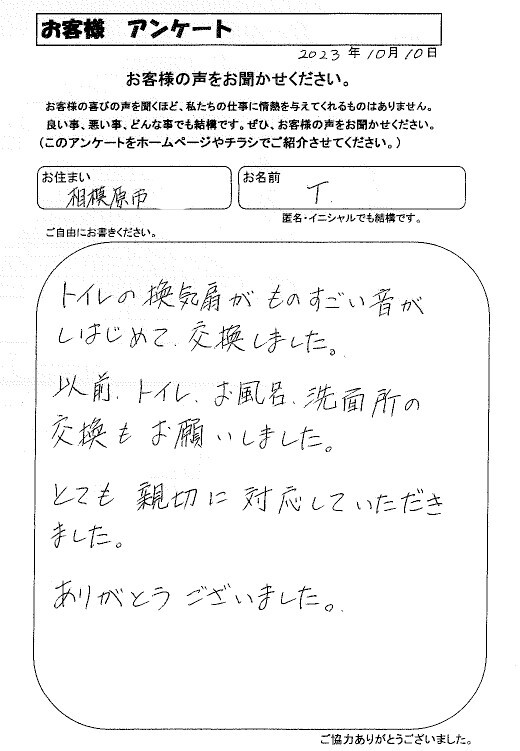 お客様 アンケート
2023 年 10月 10日
お客様の声をお聞かせください。
お客様の喜びの声を聞くほど、私たちの仕事に情熱を与えてくれるものはありません。
良い事、悪い事、どんな事でも結構です。ぜひ、お客様の声をお聞かせください。
(このアンケートをホームページやチラシでご紹介させてください。)
お住まい
相模原市
お名前
T.
匿名・イニシャルでも結構です。
ご自由にお書きください。
トイレの換気扇がものすごい音が
しはじめて、交換しました。
以前、トイレ、お風呂、洗面所の
交換もお願いしました。
とても親切に対応していただき
ました。
ありがとうございました。
ご協力ありがとうございました。